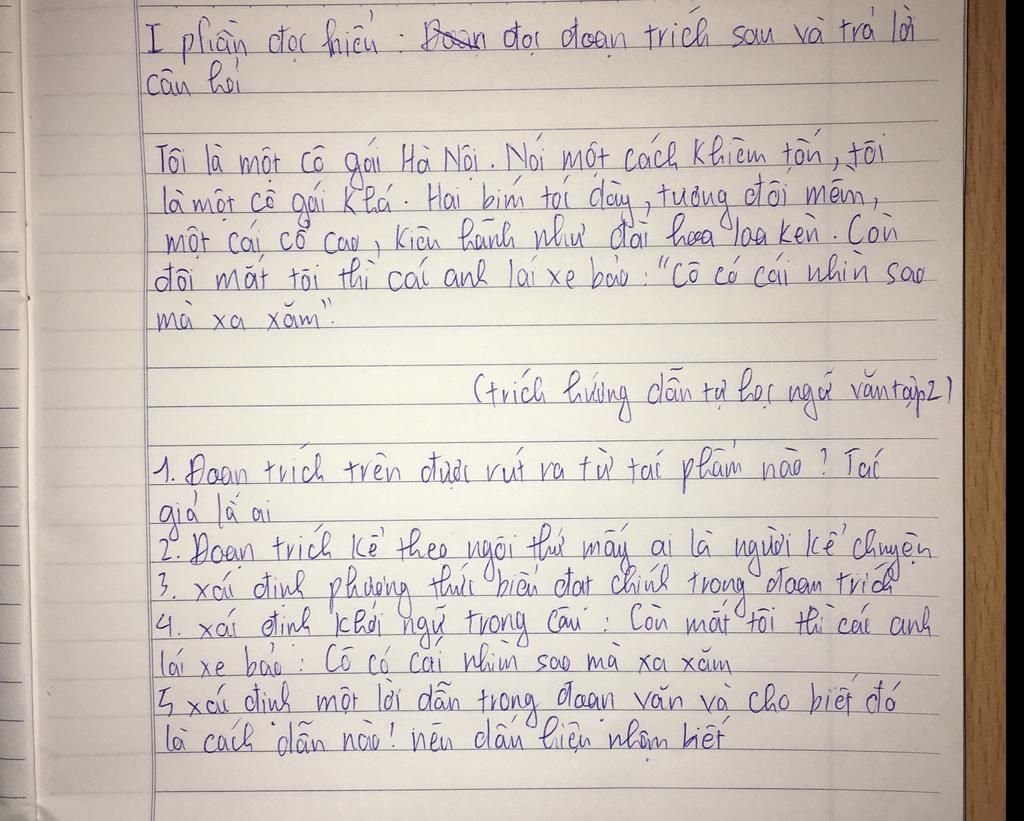 I phần đọc hiểu : Đoạn đọc đoạn trích sau và trả lời
câu hỏi
Tôi là một cô gái Hà Nội. Nói một cách khiêm tốn, tôi
là một cô gái khá. Hai bím tóc dày, tương đối mềm,
một cái cổ cao, kiêu hãnh như đài hoa loa kèn. Còn
đôi mắt tôi thì các anh lái xe bảo : "Cô có cái nhìn sao
mà xa xăm".
(trích hướng dẫn tự học ngữ văn tập 2)
1. Đoạn trích trên được rút ra từ tác phẩm nào ? Tác
giả là ai
2. Đoạn trích kể theo ngôi thứ mấy ai là người kể chuyện
3. xác định phương thức biểu đạt chính trong đoạn trích
4. xác định khởi ngữ trong câu : Còn mắt tôi thì các anh
lái xe bảo : Cô có cái nhìn sao mà xa xăm
5 xác định một lời dẫn trong đoạn văn và cho biết đó
là cách dẫn nào ! nêu dấu hiệu nhận biết